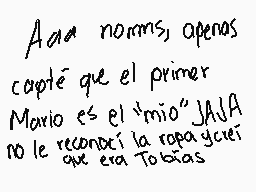 Aaa norms, apenas
capté que el primer
Mario es el "mío" JAJA
no le reconocí la ropa y creí
que era Tobías